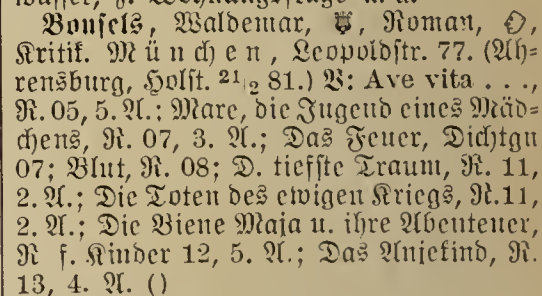 Bonsels, Waldemar, Roman,
Kritik. München, Leopoldstr. 77. (Ah=
rensburg, Holst. 21/2 81.) V: Ave vita . . .,
R. 05, 5. A.; Mare, die Jugend eines Mäd=
chens, R. 07, 3. A.; Das Feuer, Dichtgn
07; Blut, R. 08; D. tiefste Traum, R. 11,
2. A.; Die Toten des ewigen Kriegs, R. 11,
2. A.; Die Biene Maja u. ihre Abenteuer,
R f. Kinder 12, 5. A.; Das Anjekind, R.
13, 4. A. ()